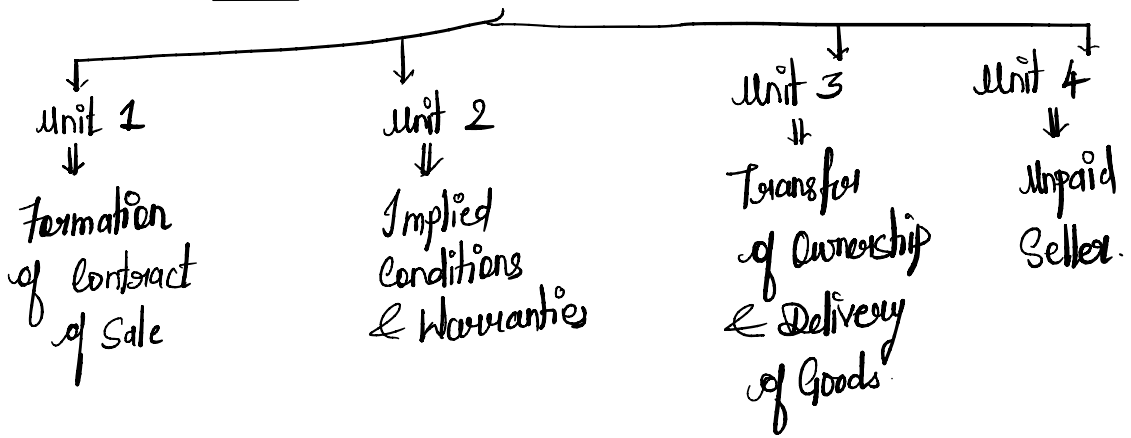 Unit 1
Formation
of Contract
of Sale
Unit 2
Implied
Conditions
& Warranties
Unit 3
Transfer
of Ownership
& Delivery
of Goods.
Unit 4
Unpaid
Seller.